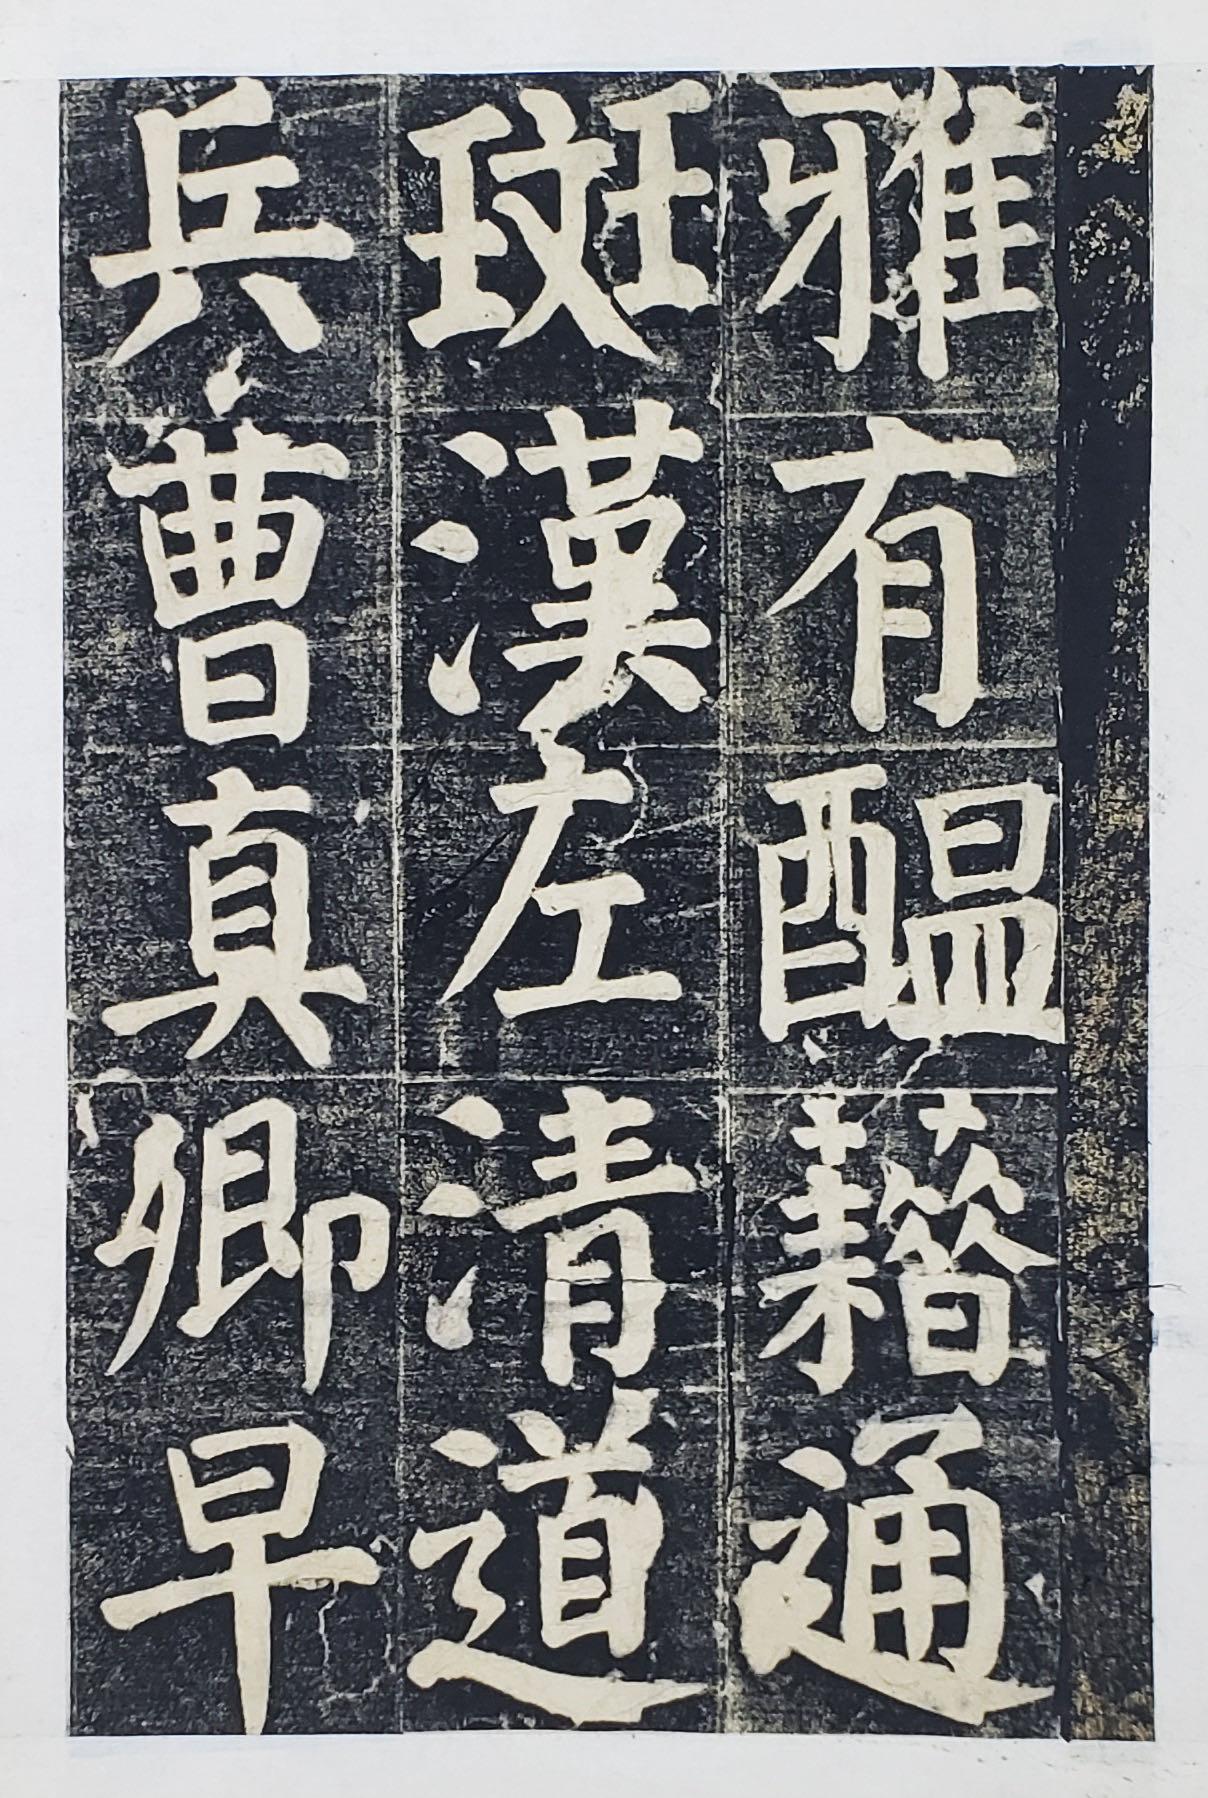 雅有醖藉通
斑漢左清道
兵曹真卿早